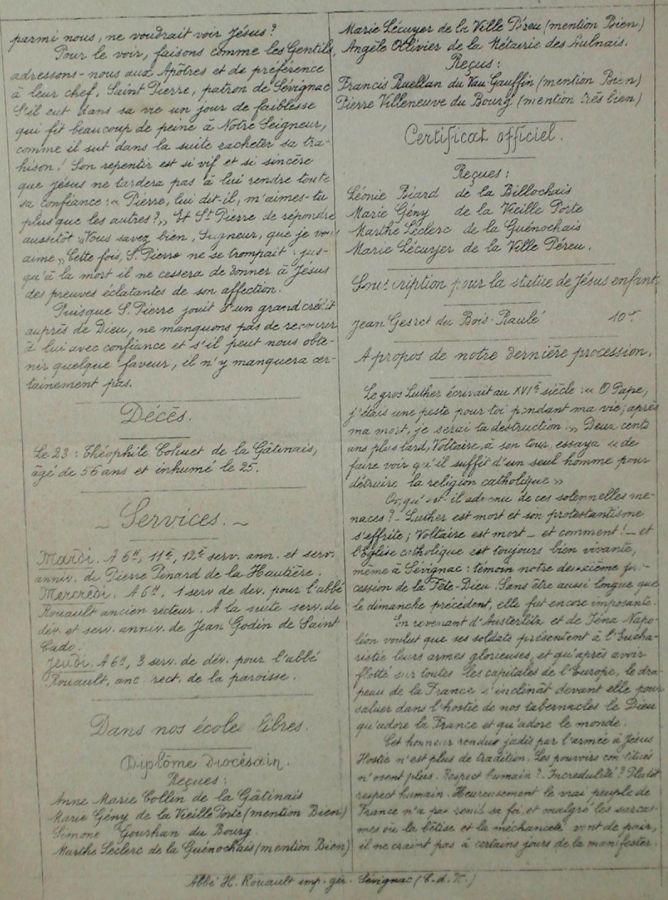 parmi nous, ne voudrait voir Jésus ?
Pour le voir, faisons comme les Gentils,
adressons-nous aux Apôtres et de préférence
à leur chef, Saint Pierre, patron de Sévignac
S'il eut dans sa vie un jour de faiblesse
qui fit beaucoup de peine à Notre Seigneur,
comme il sut dans la suite racheter sa tra-
hison ! Son repentir est si vif et si sincère
que Jésus ne tardera pas à lui rendre toute
sa confiance : « Pierre, lui dit-il, m'aimes-tu
plus que les autres ? » Et St Pierre de répondre
aussitôt « Vous savez bien, Seigneur, que je vous
aime » Cette fois, S. Pierre ne se trompait : jus-
qu'à la mort il ne cessera de donner à Jésus
des preuves éclatantes de son affection.
Puisque S. Pierre jouit d'un grand crédit
auprès de Dieu, ne manquons pas de recourir
à lui avec confiance et s'il peut nous obte-
nir quelque faveur, il n'y manquera cer-
tainement pas.
Décès.
Le 23 : Théophile Cohuet de la Gâtinais,
âgé de 56 ans et inhumé le 25.
~ Services. ~
Mardi. A 6h, 11e, 12e serv. ann. et serv.
anniv. de Pierre Renard de la Hautière.
Mercredi. A 6h, 1 serv de dév. pour l'abbé
Rouault ancien recteur. A la suite serv. de
dév. et serv. anniv. de Jean Godin de Saint
Cade.
Jeudi. A 6h, 3 serv. de dév. pour l'abbé
Rouault, anc. rect. de la paroisse.
Dans nos écoles libres.
Diplôme Diocésain.
Reçues :
Anne Marie Collin de la Gâtinais
Marie Gény de la Vieille Porte (mention Bien)
Simone Gourhan du Bourg.
Marthe Leclerc de la Guénochais (mention Bien)
Marie Lécuyer de la Ville Péreu (mention Bien)
Angèle Ollivier de la Métairie des Aulnais.
Reçus :
Francis Ruellan du Vau Gouffin (mention Bien)
Pierre Villeneuve du Bourg (mention très bien)
Certificat officiel.
Reçues :
Léonie Biard de la Billochais
Marie Gény de la Vieille Porte
Marthe Leclerc de la Guénochais
Marie Lécuyer de la Ville Péreu.
Souscription pour la statue de Jésus enfant.
Jean Gesret du Bois-Raulé 10f
A propos de notre dernière procession.
Le gros Luther écrivait au XVIe siècle : « O Pape,
j'étais une peste pour toi pendant ma vie ; après
ma mort, je serai ta destruction. » Deux cents
ans plus tard, Voltaire, à son tour, essaya « de
faire voir qu'il suffit d'un seul homme pour
détruire la religion catholique »
Or, qu'est-il advenu de ces solennelles me-
naces ? – Luther est mort et son protestantisme
s'effrite ; Voltaire est mort – et comment ! – et
l'Eglise catholique est toujours bien vivante,
même à Sévignac : témoin notre deuxième pro-
cession de la Fête-Dieu. Sans être aussi longue que
le dimanche précédent, elle fut encore imposante.
En revenant d'Austerlitz et de Iéna Napo-
léon voulut que ses soldats présentent à l'Eucha-
ristie leurs armes glorieuses, et qu'après avoir
flotté sur toutes les capitales de l'Europe, le dra-
peau de la France s'inclinât devant elle pour
saluer dans l'hostie de nos tabernacles le Dieu
qu'adore la France et qu'adore le monde.
Cet honneur rendu jadis par l'armée à Jésus
Hostie n'est plus de tradition. Les pouvoirs constitués
n'osent plus. Respect humain ? Incrédulité ? Plutôt
respect humain. Heureusement le vrai peuple de
France n'a pas renié sa foi, et malgré les sarcas-
mes où la bêtise et la méchanceté vont de pair,
il ne craint pas à certains jours de la manifester.
Abbé H. Rouault imp. gér. Sévignac (C.-d.-N.)